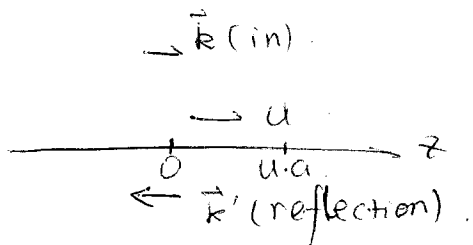 k⃗ (in)
u
0 u.a. z
k⃗' (reflection).